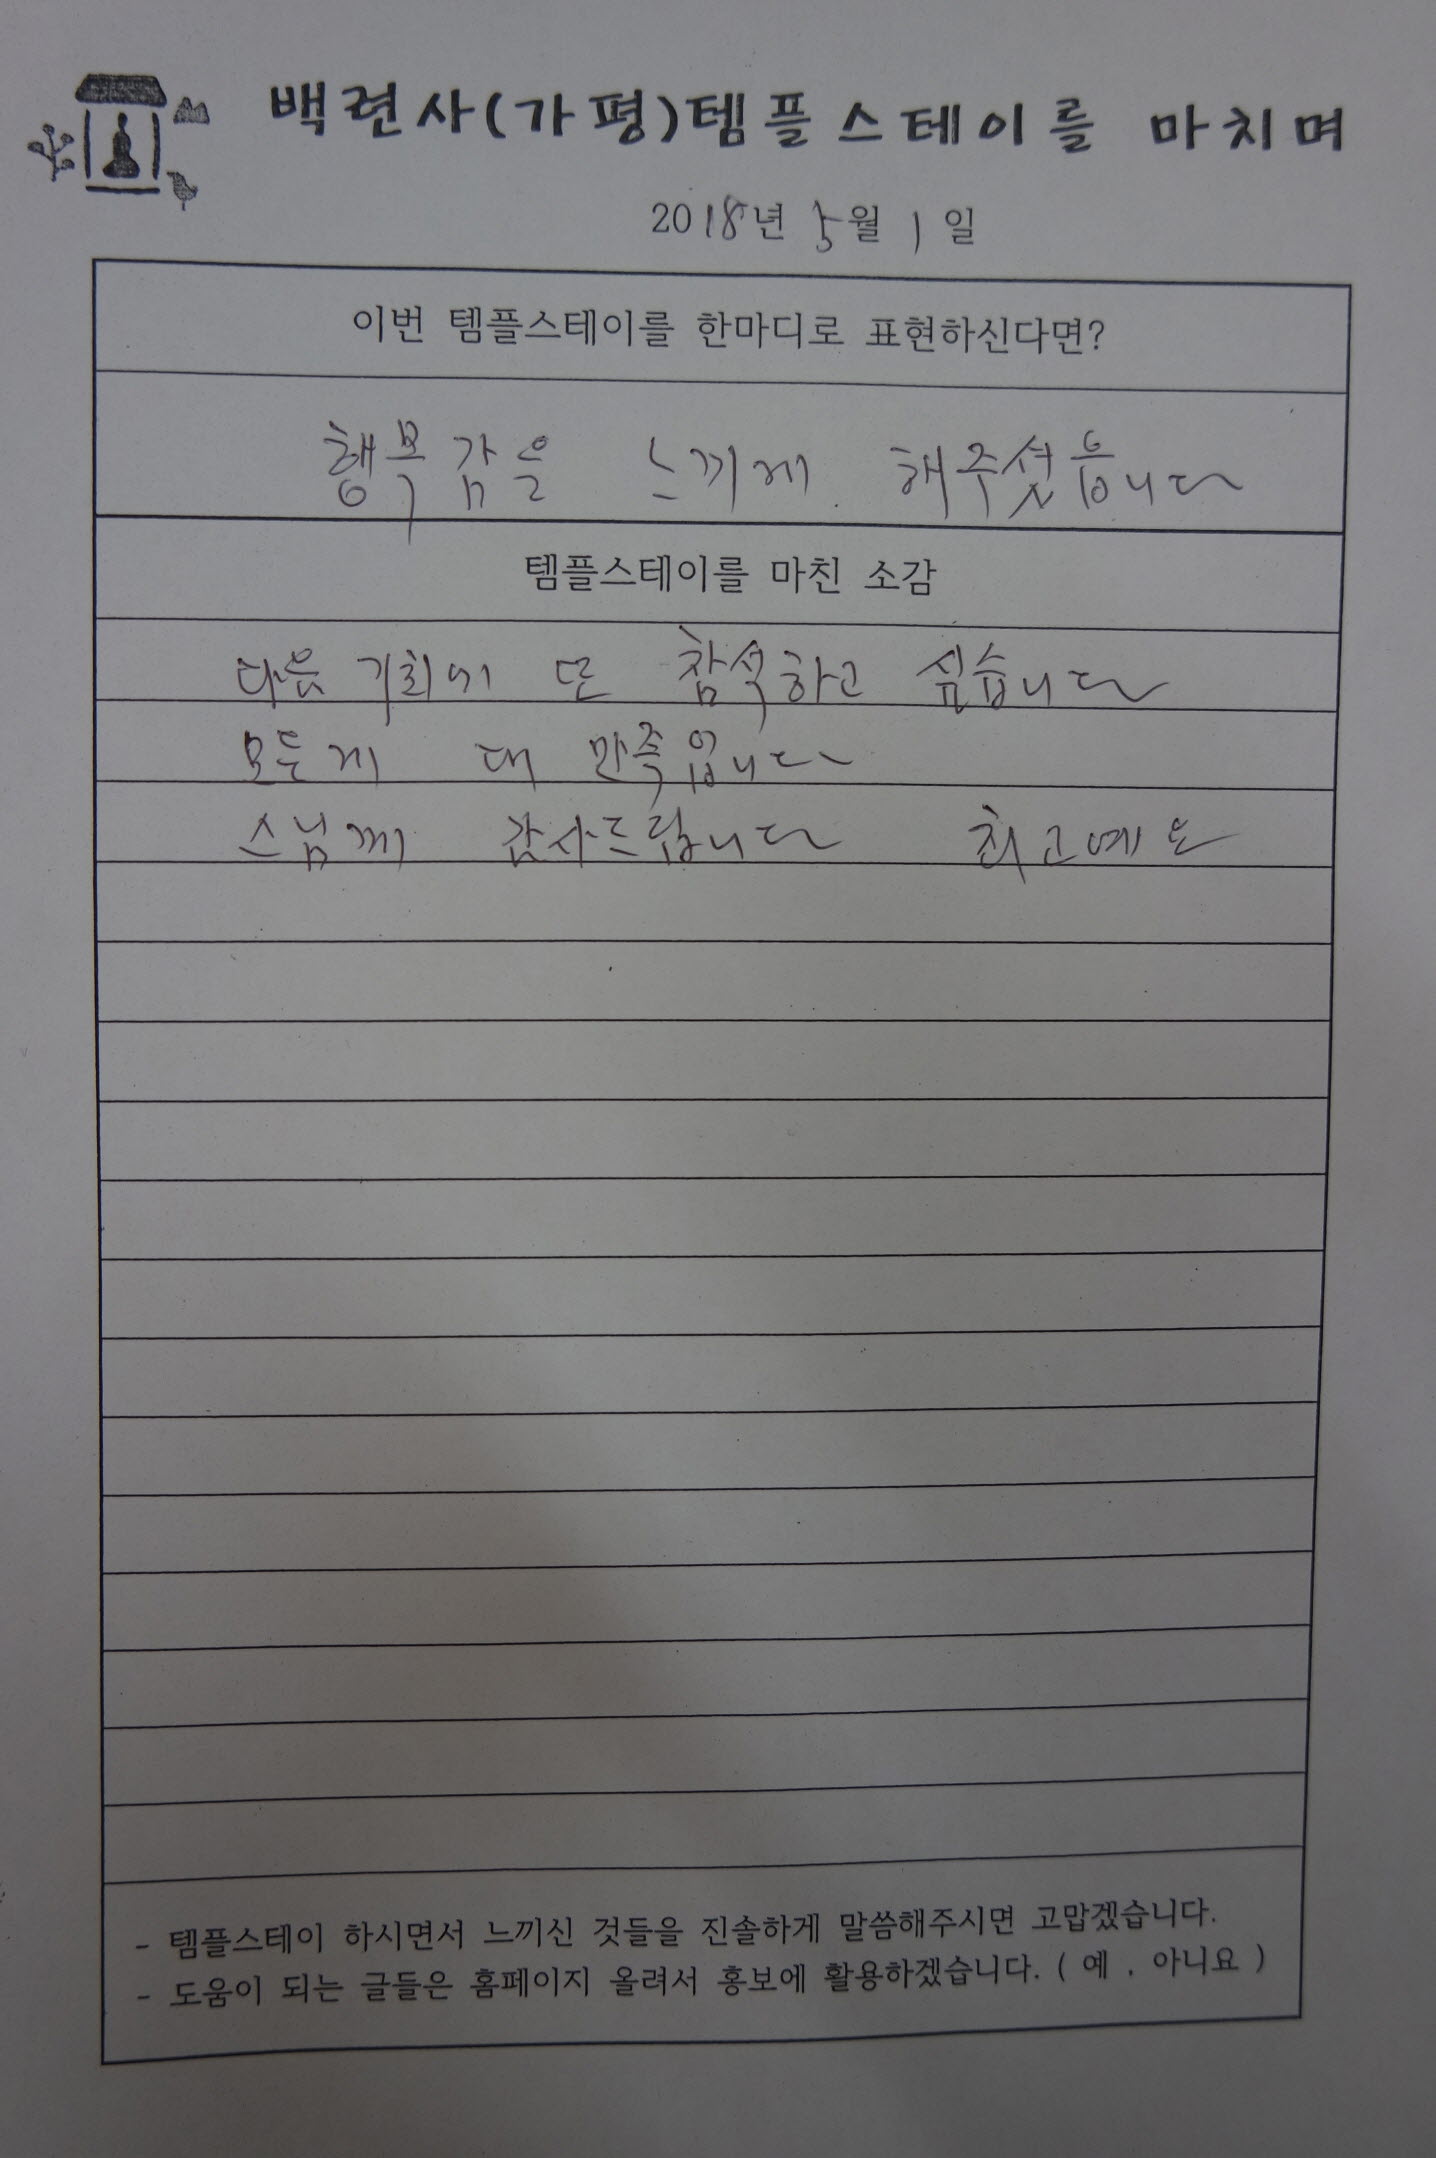 백련사(가평)템플스테이를 마치며
2018년 5월 1일
이번 템플스테이를 한마디로 표현하신다면?
행복감을 느끼게 해주셧읍니다
템플스테이를 마친 소감
다음 기회에 또 참석하고 싶습니다
모든게 대 만족입니다
스님께 감사드립니다 최고예요
- 템플스테이 하시면서 느끼신 것들을 진솔하게 말씀해주시면 고맙겠습니다.
- 도움이 되는 글들은 홈페이지 올려서 홍보에 활용하겠습니다. ( 예 , 아니요 )